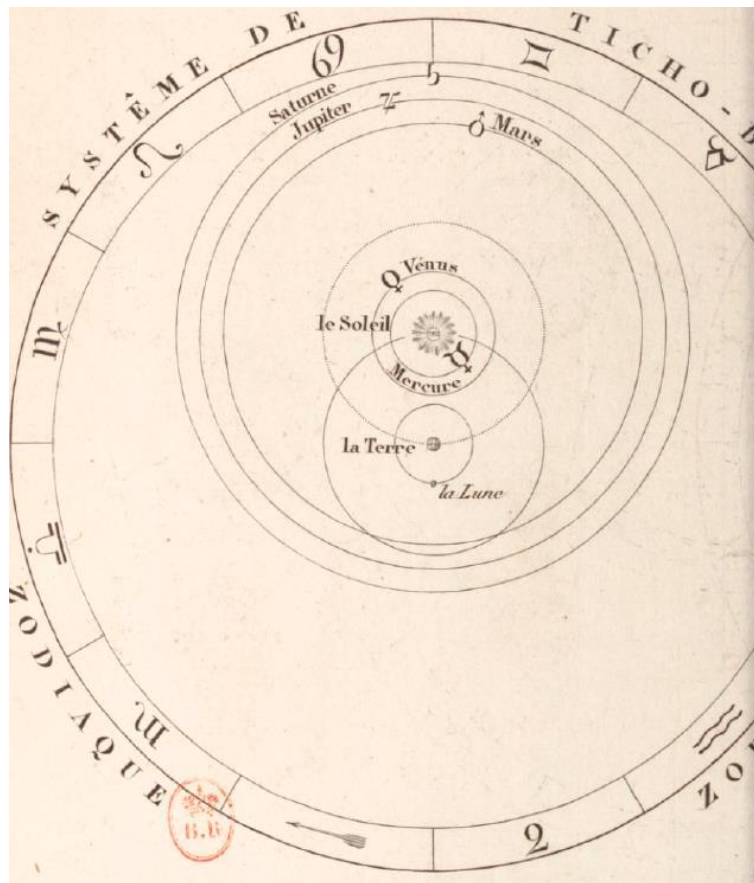 SYSTÊME DE
TICHO-B
♋
♊
♌
♉
♍
♎
♏
♒
Saturne
♄
Jupiter
♃
♂ Mars
♀ Vénus
le Soleil
☿
Mercure
la Terre
la Lune
ZODIAQUE
ZO
B.R